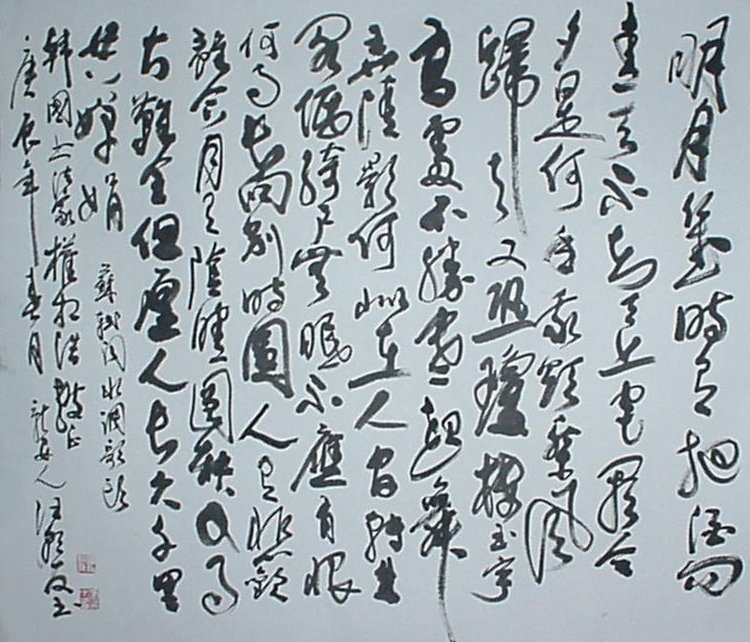 明月幾時有把酒问
青天不知天上宫阙今
夕是何年我欲乘風
歸去又恐瓊樓玉宇
高處不勝寒起舞
弄清影何似在人间轉朱
阁低绮户照無眠不應有恨
何事長向别時圆人有悲歡
離合月有陰晴圆缺此事
古難全但願人長久千里
共嬋娟 蘇軾词水調歌頭
韩國书法家權相浩教正
庚辰年春月 安人汪